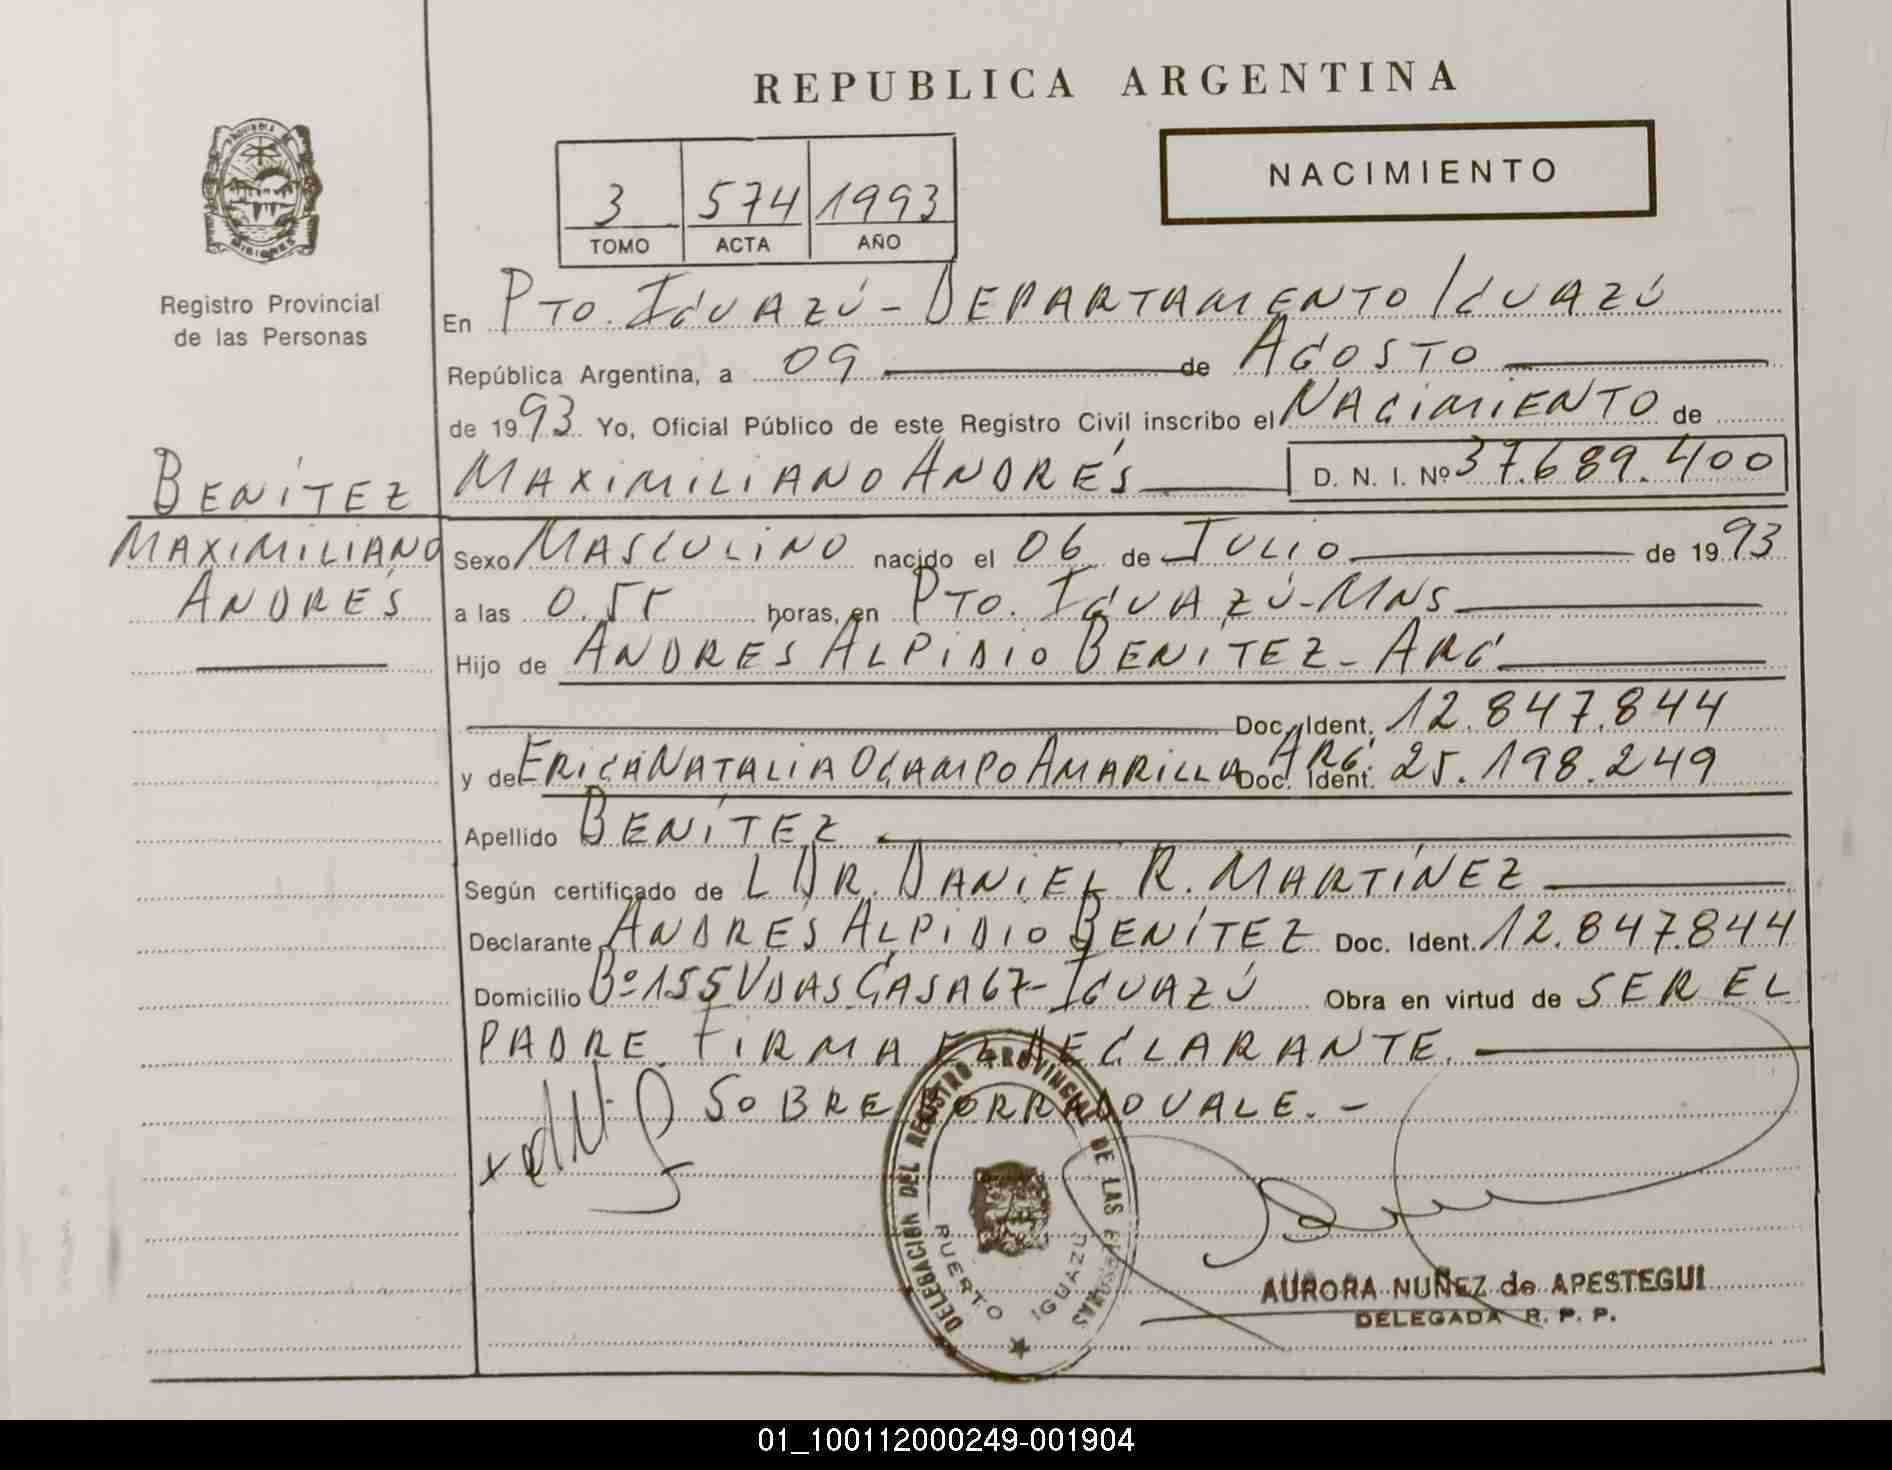 REPUBLICA ARGENTINA
NACIMIENTO
3 574 1993
TOMO ACTA AÑO
PROVINCIA DE
MISIONES
Registro Provincial
de las Personas
En PTO. IGUAZÚ - DEPARTAMENTO IGUAZÚ
República Argentina, a 09 de AGOSTO
de 1993 Yo, Oficial Público de este Registro Civil inscribo el NACIMIENTO de
MAXIMILIANO ANDRÉS D. N. I. Nº 37.689.400
BENÍTEZ
MAXIMILIANO
ANDRÉS
Sexo MASCULINO nacido el 06 de JULIO de 1993
a las 0.55 horas, en PTO. IGUAZÚ-MNS
Hijo de ANDRÉS ALPIDIO BENÍTEZ - ARG
Doc. Ident. 12.847.844
y de ERICA NATALIA OCAMPO AMARILLA ARG. Doc. Ident. 25.198.249
Apellido BENÍTEZ
Según certificado de L DR. DANIEL R. MARTÍNEZ
Declarante ANDRÉS ALPIDIO BENÍTEZ Doc. Ident. 12.847.844
Domicilio Bº 155 VDAS CASA 67- IGUAZÚ Obra en virtud de SER EL
PADRE. FIRMA EL DECLARANTE.
SOBRE BORRADO VALE. -
DELEGACION DEL REGISTRO PROVINCIAL DE LAS PERSONAS
PUERTO IGUAZU
AURORA NUÑEZ de APESTEGUI
DELEGADA R. P. P.
01_100112000249-001904